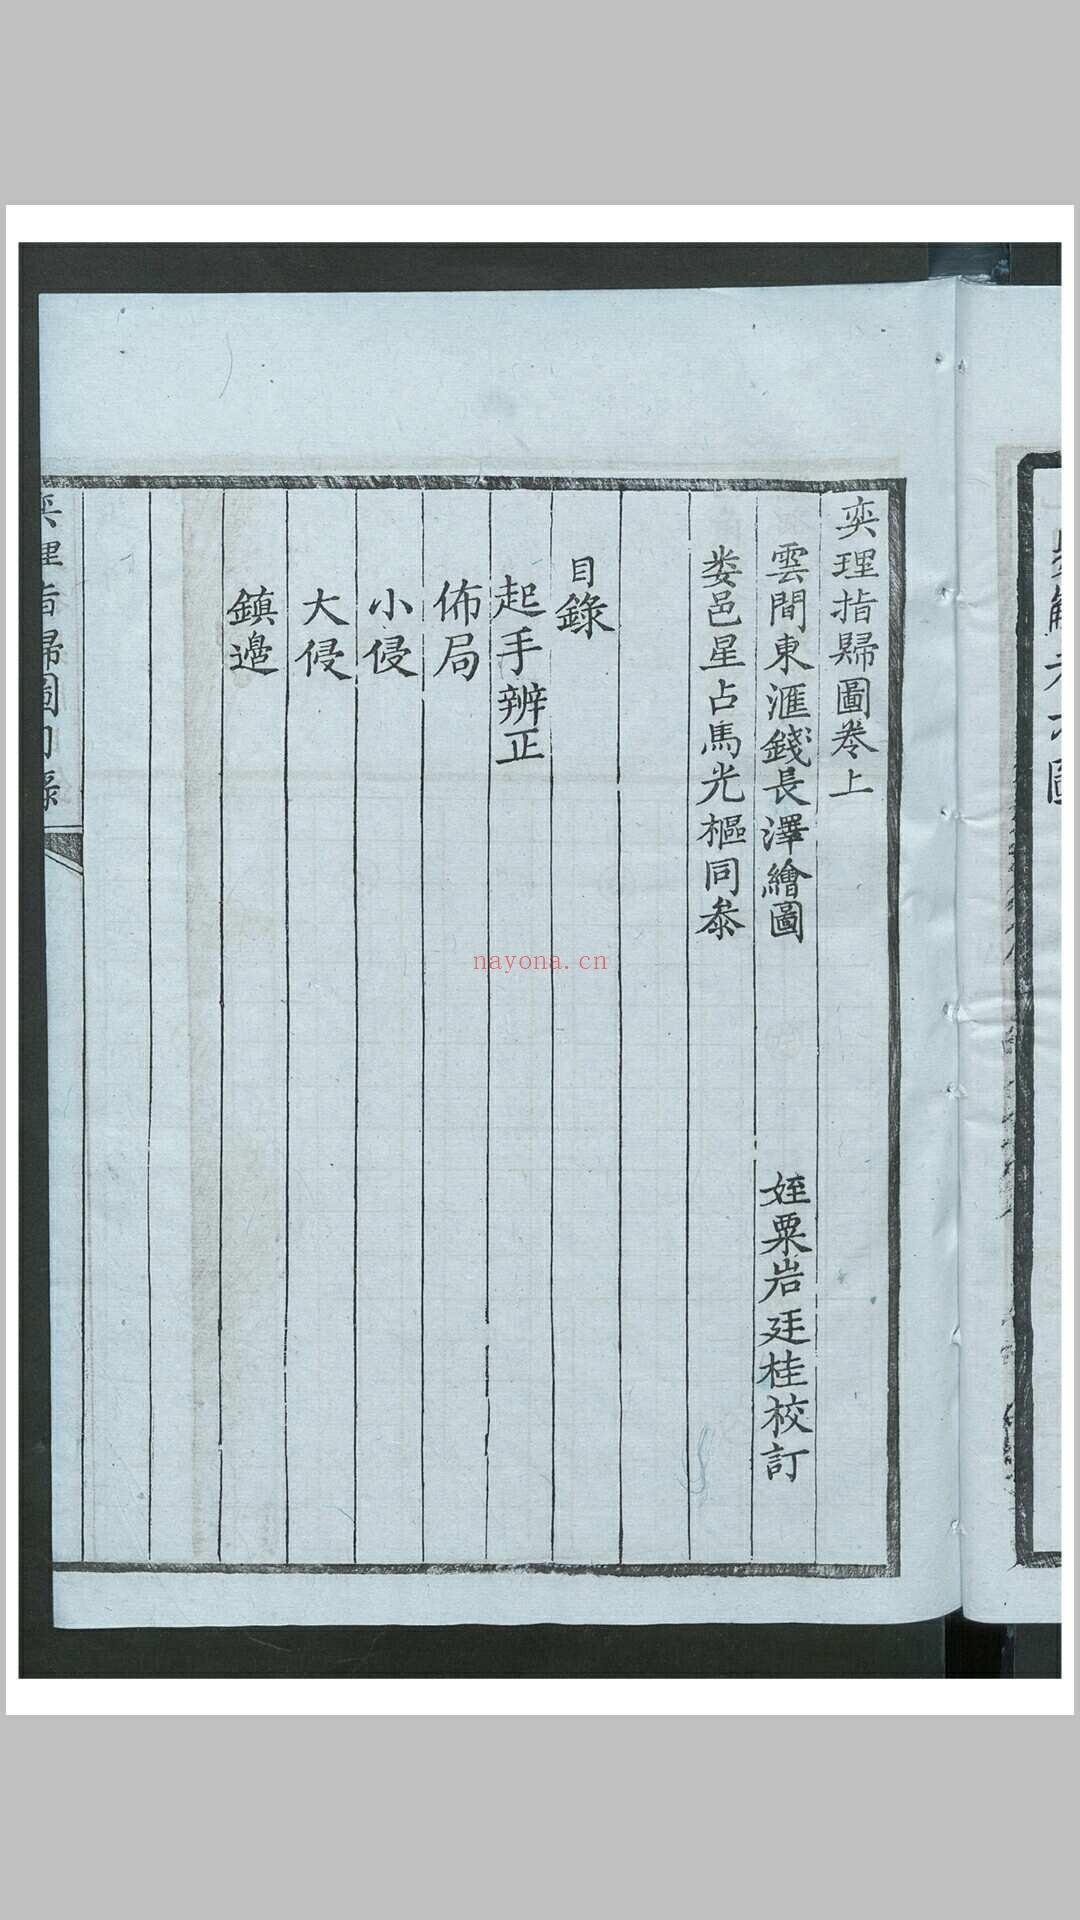 奕理指歸圖卷上
雲間東滙錢長澤繪圖
姪粟岩廷桂校訂
婁邑星占馬光樞同叅
目錄
起手辨正
佈局
小侵
大侵
鎮邊
奕理指歸圖目錄
nayona.cn